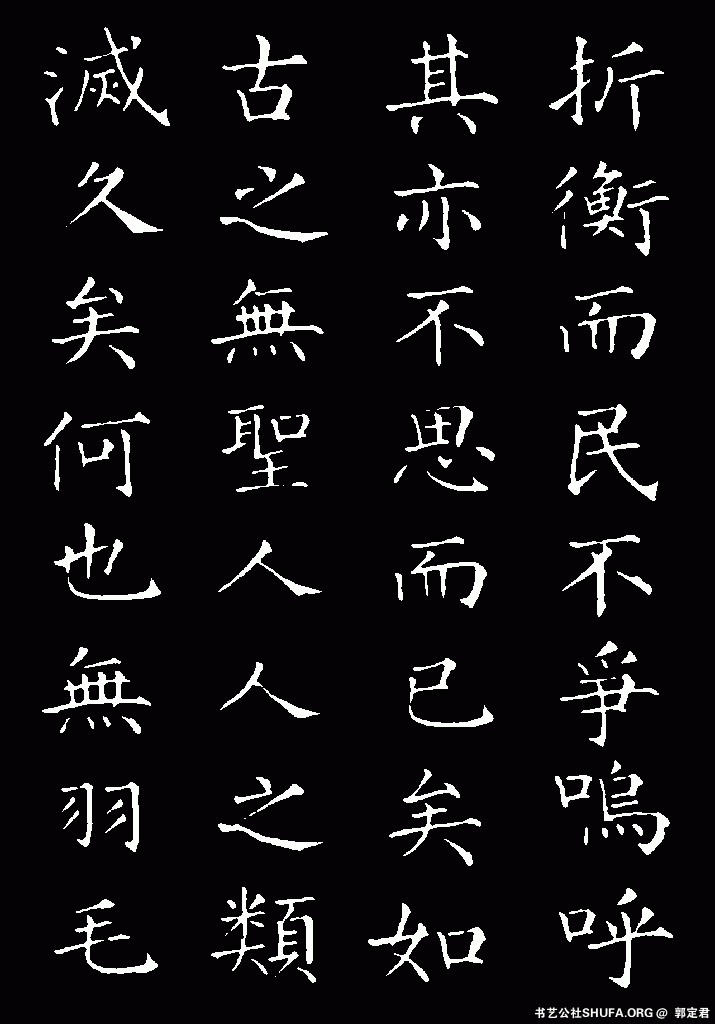 折衡而民不爭嗚呼
其亦不思而已矣如
古之無聖人人之類
滅久矣何也無羽毛
书艺公社SHUFA.ORG @ 郭定君